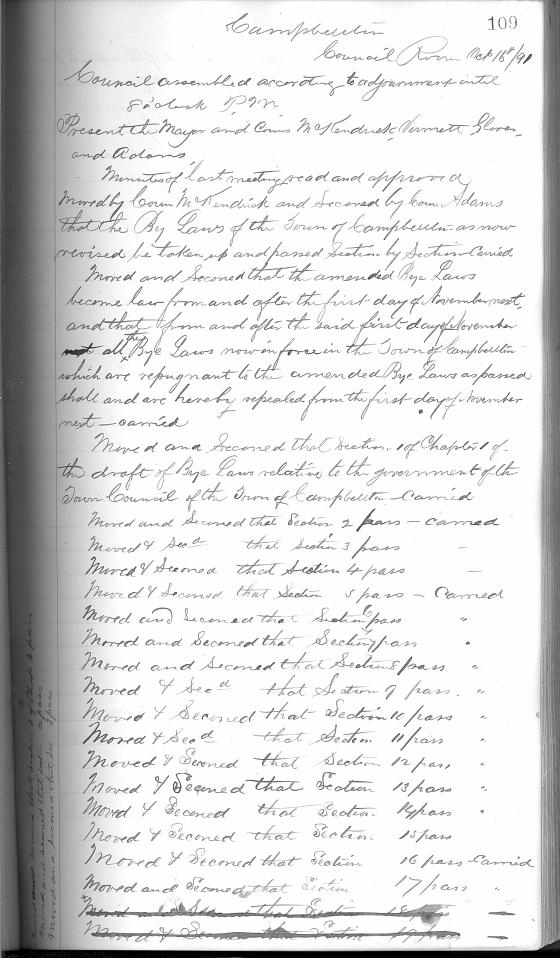 109
Campbellton
Council Room Oct 16th/91
Council assembled according to adjournment until
8 o'clock P.M
Present the Mayor and Couns McKendrick, Vermett Glover,
and Adams,
Minutes of last meeting read and approved,
Moved by Coun McKendrick and Seconed by Coun Adams
that the By Laws of the Town of Campbellton as now
revised be taken up and passed Section by Section Carried
Moved and Seconed that the amended Bye Laws
become law from and after the first day of November next,
and that from and after the said first day of November
all the Bye Laws now in force in the Town of Campbellton
which are repugnant to the amended Bye Laws as passed
shall and are hereby repealed from the first day of November
next — carried
Moved and Seconed that Section 1 of Chapter 1 of
the draft of Bye Laws relative to the government of the
Town Council of the Town of Campbellton — Carried
Moved and Seconed that Section 2 pass — carried
Moved & Secd that Section 3 pass —
Moved & Seconed that Section 4 pass —
Moved & Seconed that Section 5 pass — Carried
Moved and Seconed that Section 6 pass "
Moved and Seconed that Section 7 pass "
Moved and Seconed that Section 8 pass "
Moved & Secd that Section 9 pass. "
Moved & Seconed that Section 10 pass "
Moved & Secd that Section 11 pass "
Moved & Seconed that Section 12 pass "
Moved & Seconed that Section 13 pass "
Moved & Seconed that Section 14 pass "
Moved & Seconed that Section 15 pass
Moved & Seconed that Section 16 pass — Carried
Moved and Seconed that Section 17 pass "
Moved and Seconed that Section 18 pass —
Moved & Seconed that Section 19 pass —